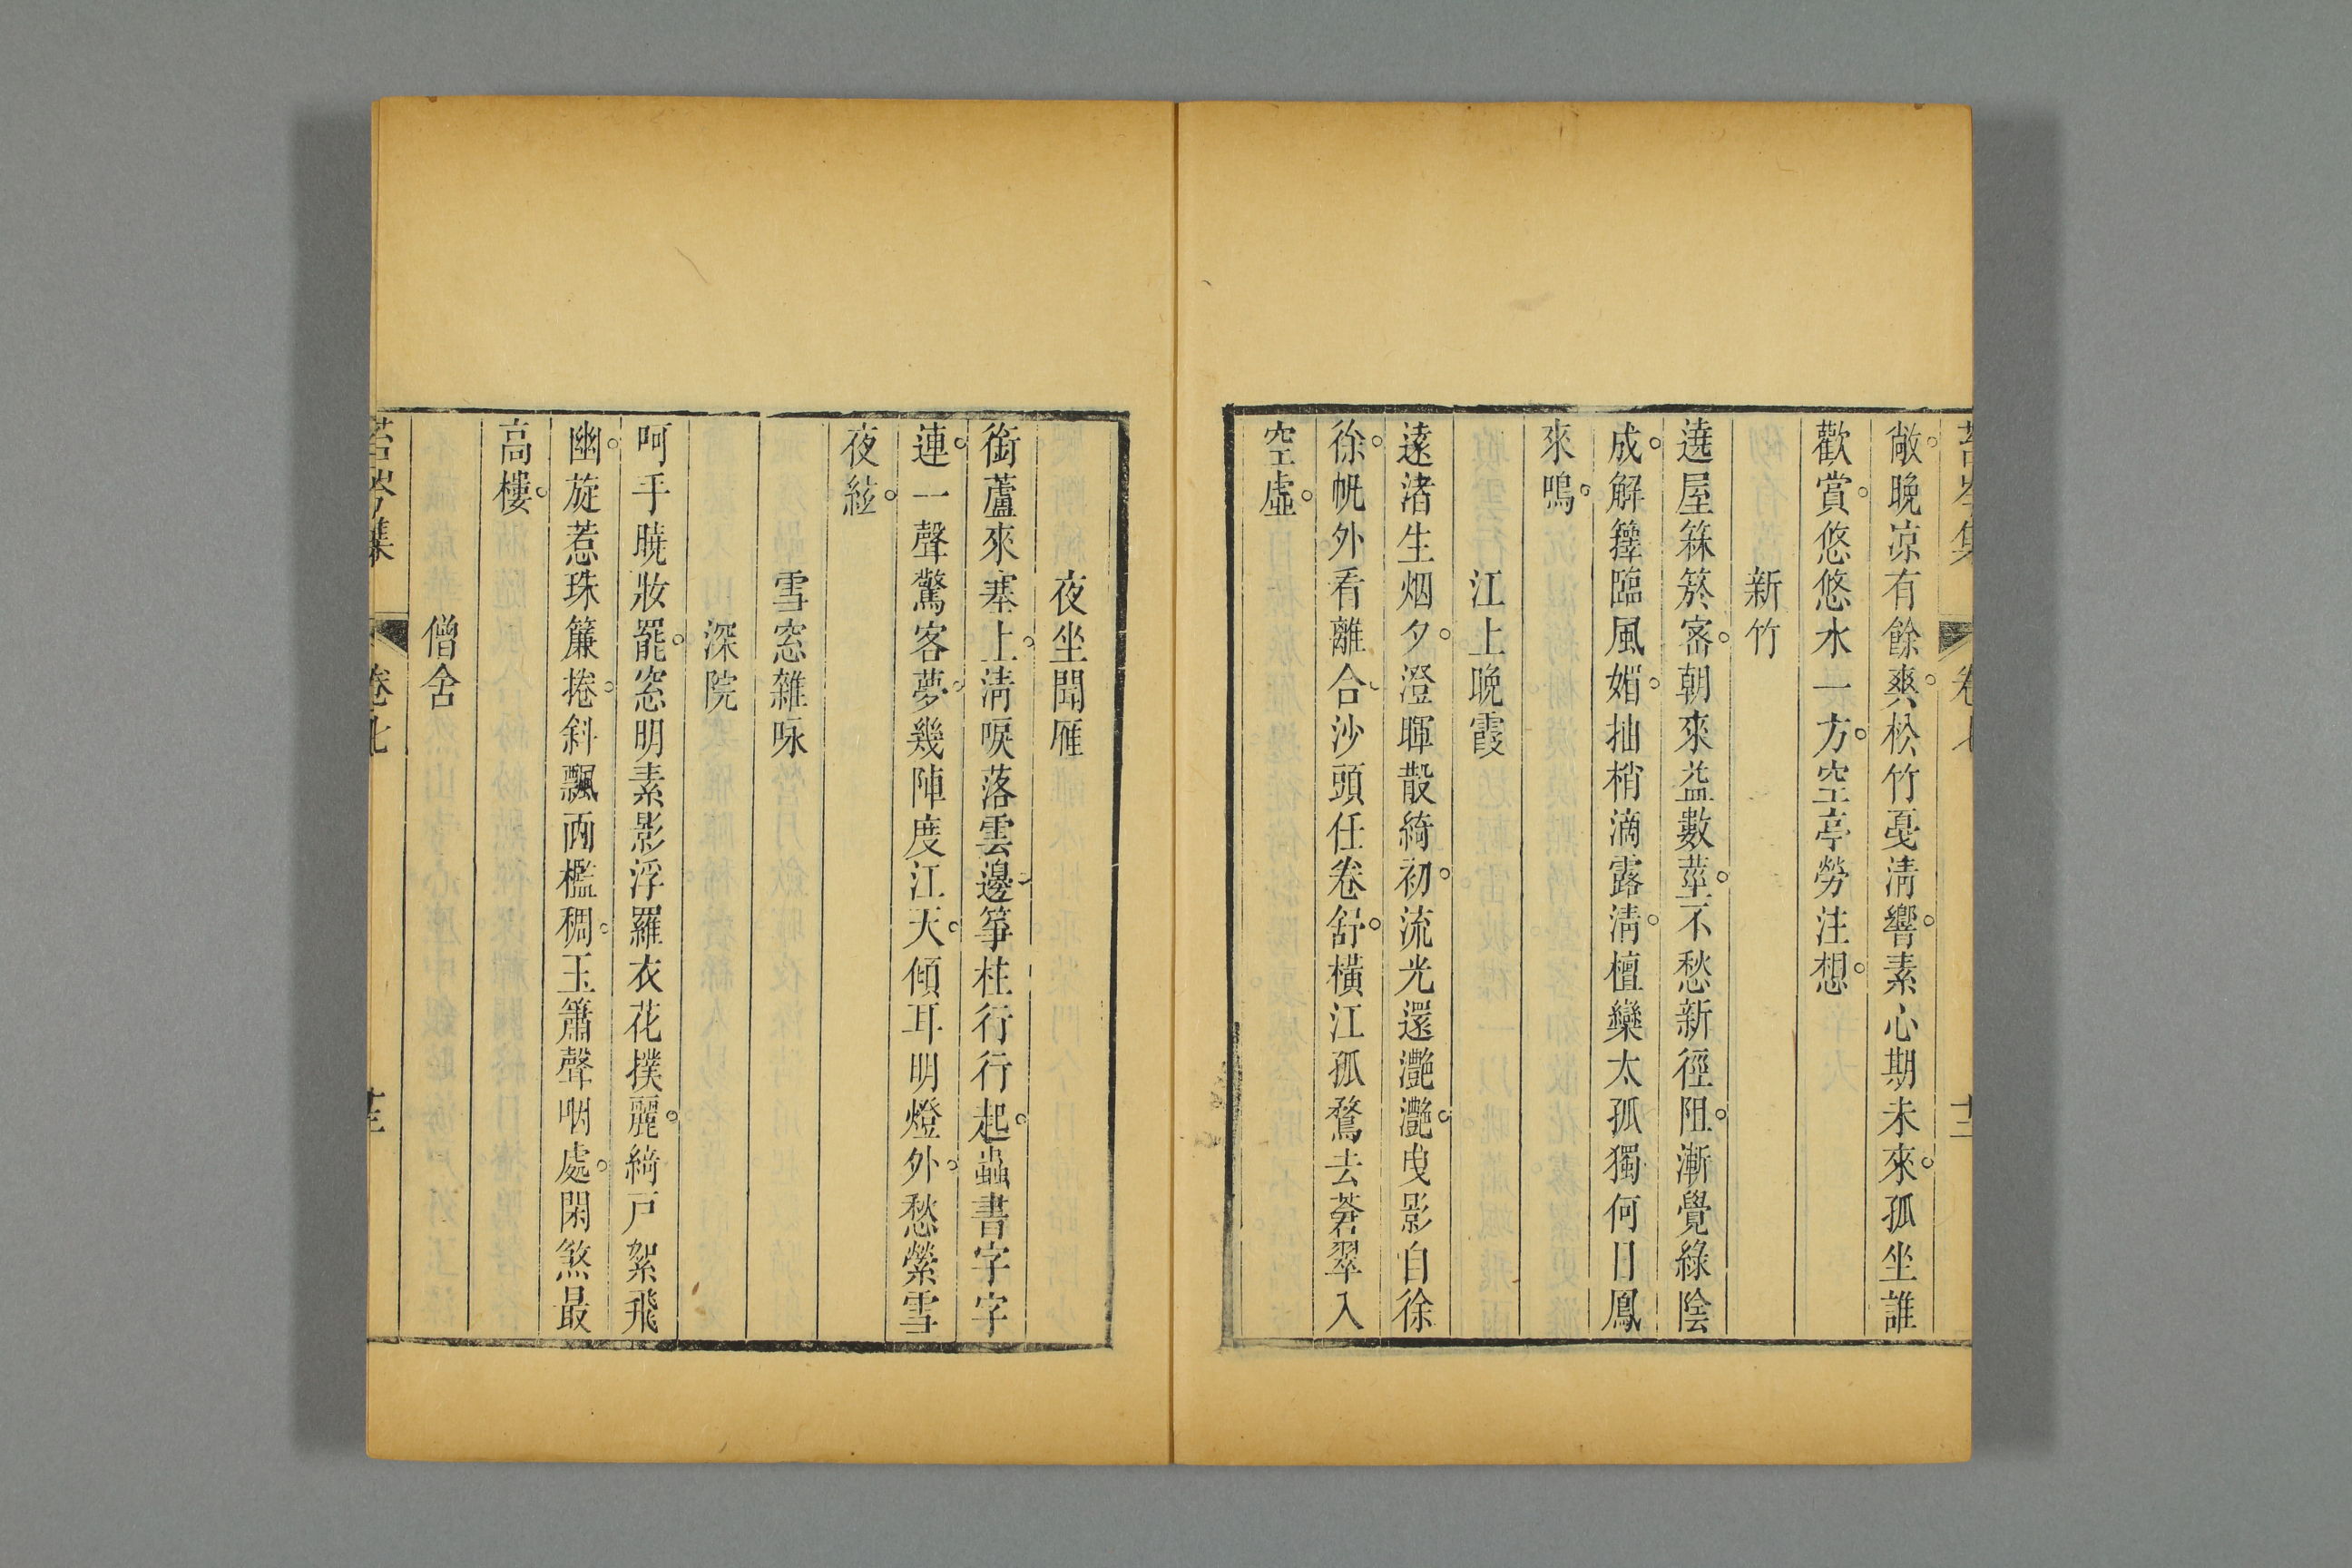 苔岑集 卷七 十三
敞晚凉有餘爽松竹戞清響素心期未來孤坐誰
歡賞悠悠水一方空亭勞注想
新竹
遶屋箖箊宻朝來益數莖不愁新徑阻漸覺綠陰
成解籜臨風媚抽梢滴露淸檀欒太孤獨何日鳳
來鳴
江上晚霞
遠渚生烟夕澄暉散綺初流光還灔灔曳影自徐
徐帆外看離合沙頭任卷舒橫江孤鶩去蒼翠入
空虛
夜坐聞雁
銜蘆來塞上淸唳落雲邊筝柱行行起蟲書字字
連一聲驚客夢幾陣度江天傾耳明燈外愁縈雪
夜絃
雪窓雜咏
深院
呵手曉妝罷窓明素影浮羅衣花撲麗綺戸絮飛
幽旋惹珠簾捲斜飄画檻稠玉簫聲咽處閑煞最
高樓
僧舍
苔岑集 卷七